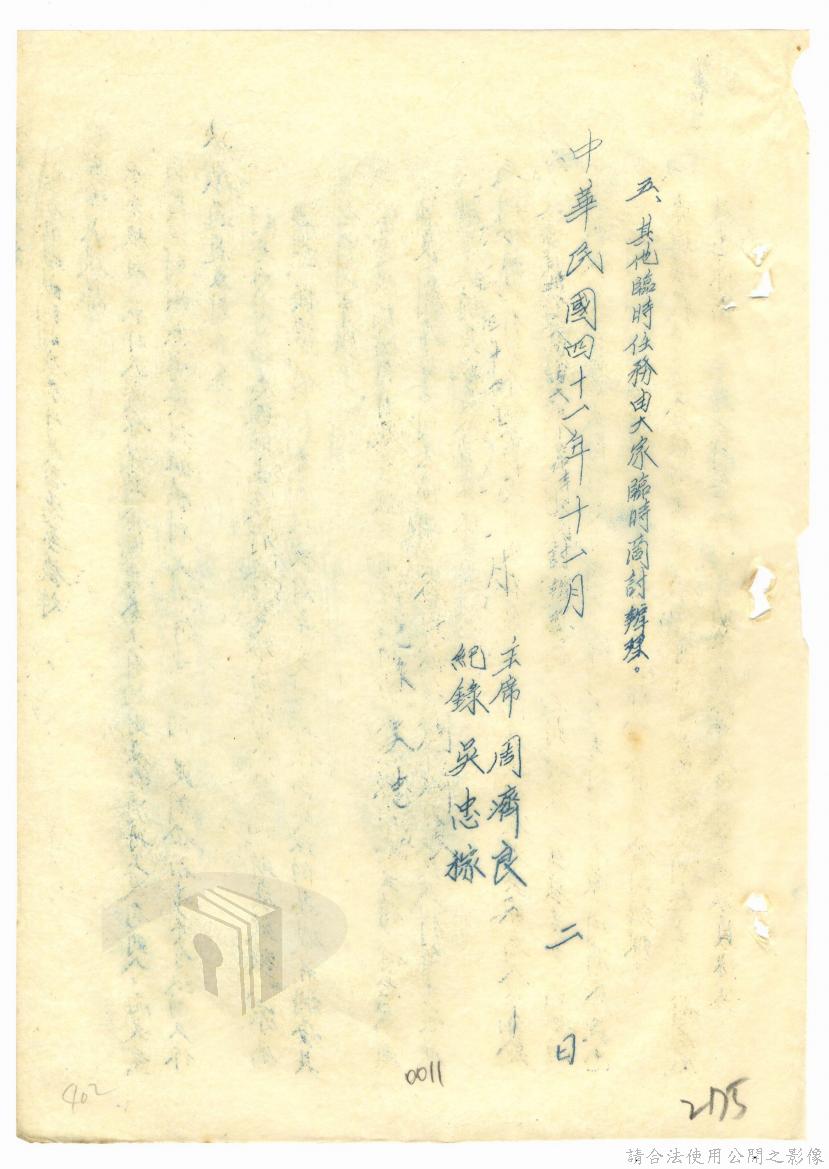 五、其他臨時任務由大家臨時商討辦理。
中華民國四十一年十一月 二 日
主席 周濟良
紀錄 吳忠稼
0011
402
2175
請合法使用公開之影像